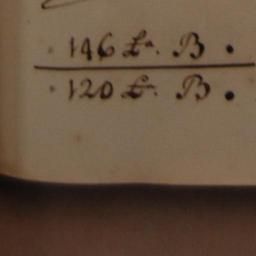 · 146 ₶. B ·
· 120 ₶. B ·